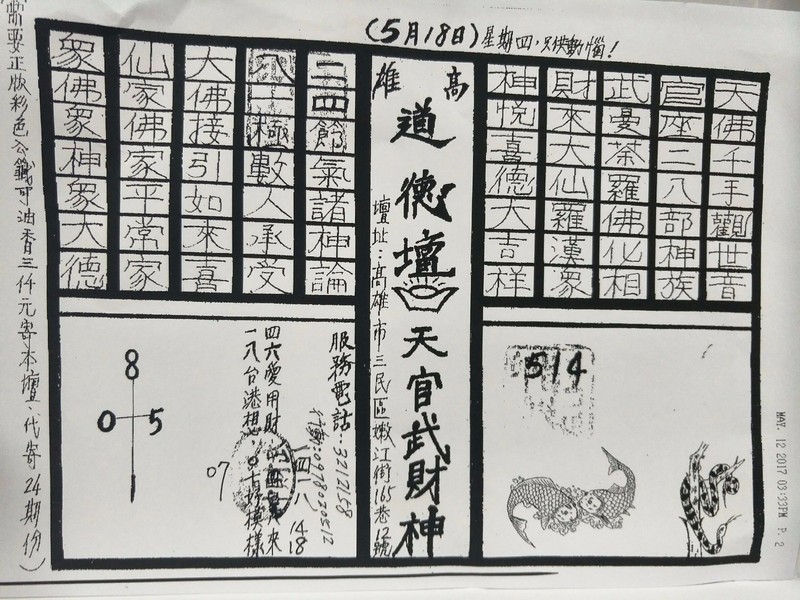 (5月18日)星期四,只供動惱!
天佛千手觀世音
官座二八部神族
武曼茶羅佛化相
財來大仙羅漢衆
神悅喜德大吉祥
高雄
道德壇
天官武財神
壇址:高雄市三民區嫩江街165巷12號
三四餘氣諸神論
八一極數人承受
大佛接引如來喜
仙家佛家平常家
衆佛衆神衆大德
514
服務電話:3212168
行動:0976029512
四六愛用財
來
一八台港想,
十好模樣
四一八
14
18
07
8
0
5
需要正版彩色公籤可油香三仟元寄本壇、代寄24期份)
MAY. 12 2017 03:33PM P. 2